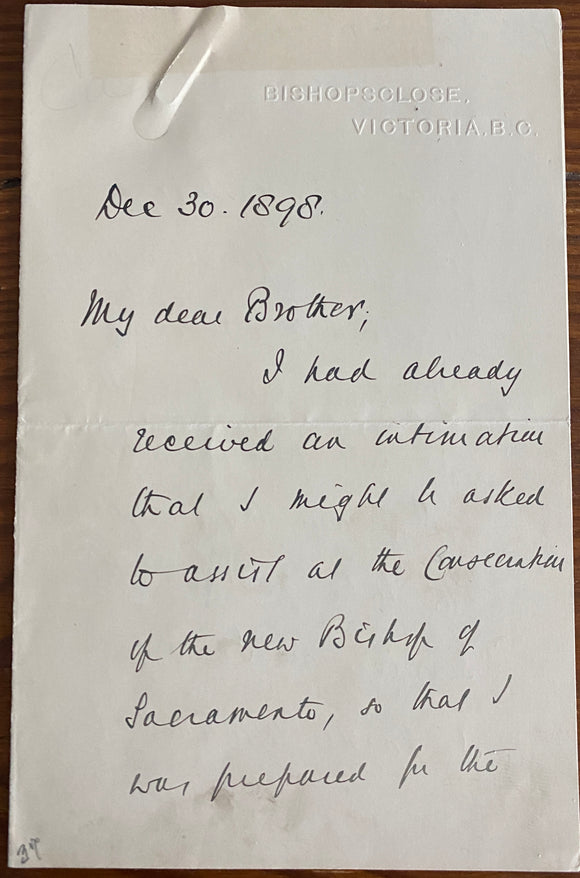 BISHOPSCLOSE,
VICTORIA, B.C.
Dec 30. 1898.
My dear Brother,
I had already
received an intimation
that I might be asked
to assist at the Consecration
of the new Bishop of
Sacramento, so that I
was prepared for the